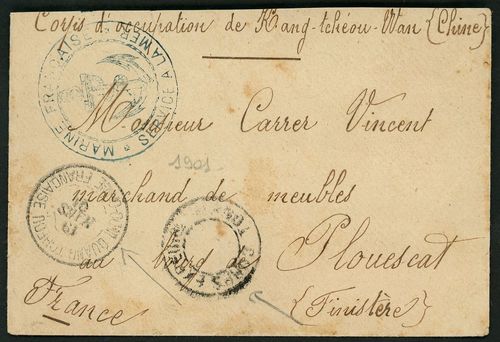 Corps d'occupation de Kang-tchéou-Wan (Chine)
MARINE FRANÇAISE
SERVICE A LA MER
Monsieur Carrer Vincent
1901
marchand de meubles
au bourg de Plouescat
France (Finistère)